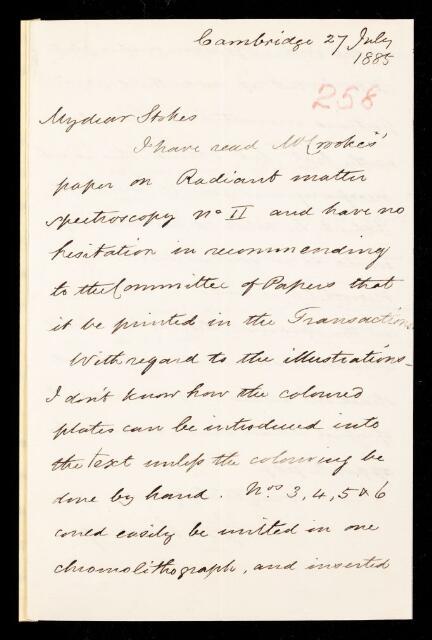 Cambridge 27 July
1885
258
My dear Stokes
I have read Mr Crookes'
paper on Radiant matter
spectroscopy no II and have no
hesitation in recommending
to the Committee of Papers that
it be printed in the Transactions
With regard to the illustrations -
I don't know how the coloured
plates can be introduced into
the text unless the colouring be
done by hand. Nos 3, 4, 5 & 6
could easily be united in one
chromolithograph, and inserted